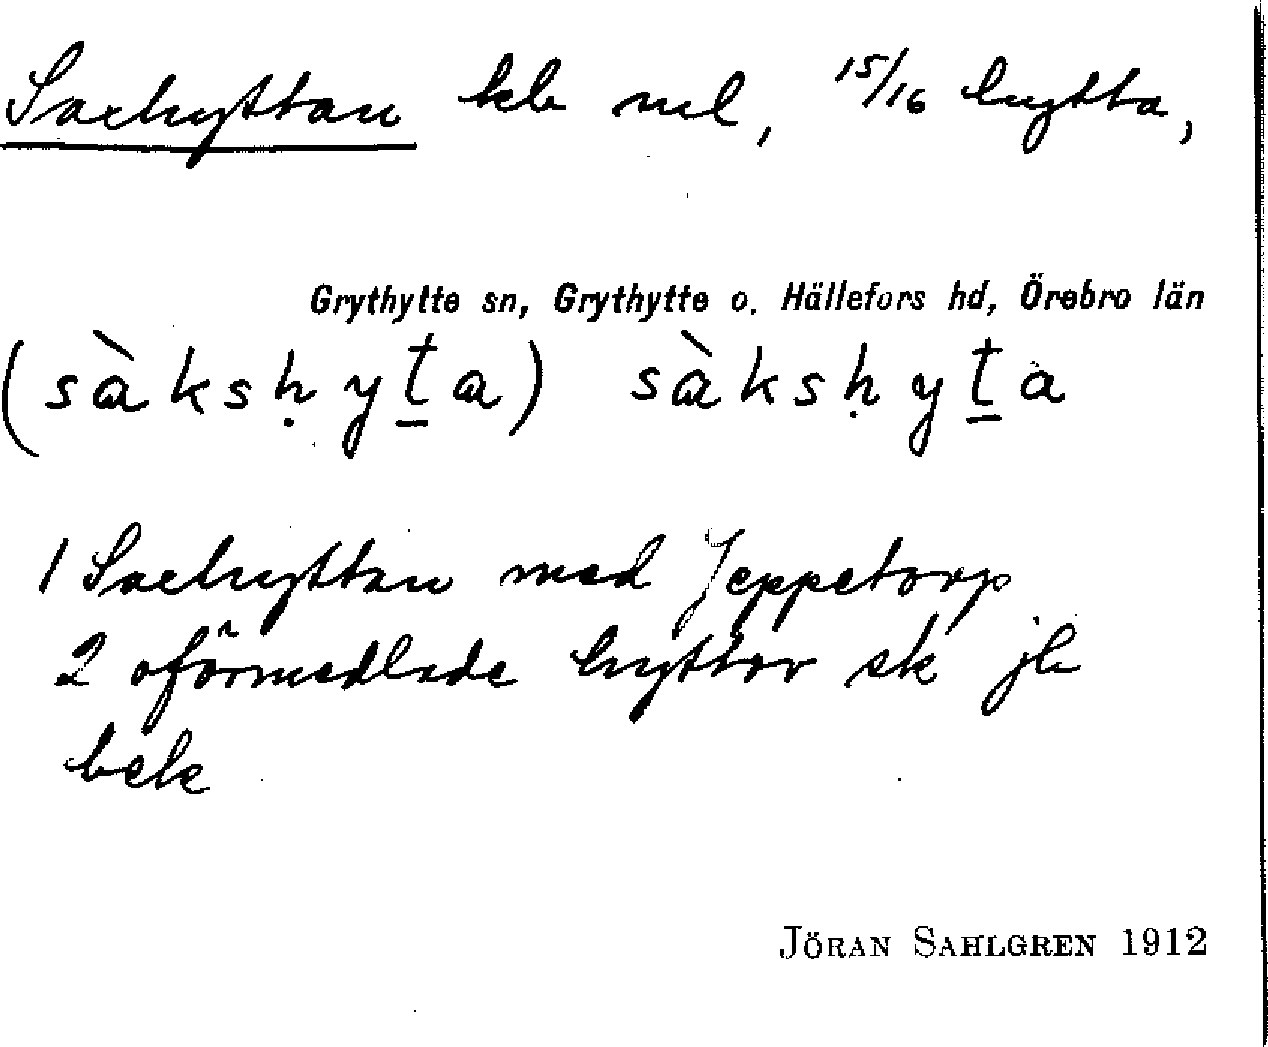 Saxhyttan kb ml, 15/16 hytta,
Grythytte sn, Grythytte o. Hällefors hd, Örebro län
(sàkshyta) sàkshyta
1 Saxhyttan med Jeppetorp
2 oförmedlade hyttor sk jb
bek
JÖRAN SAHLGREN 1912